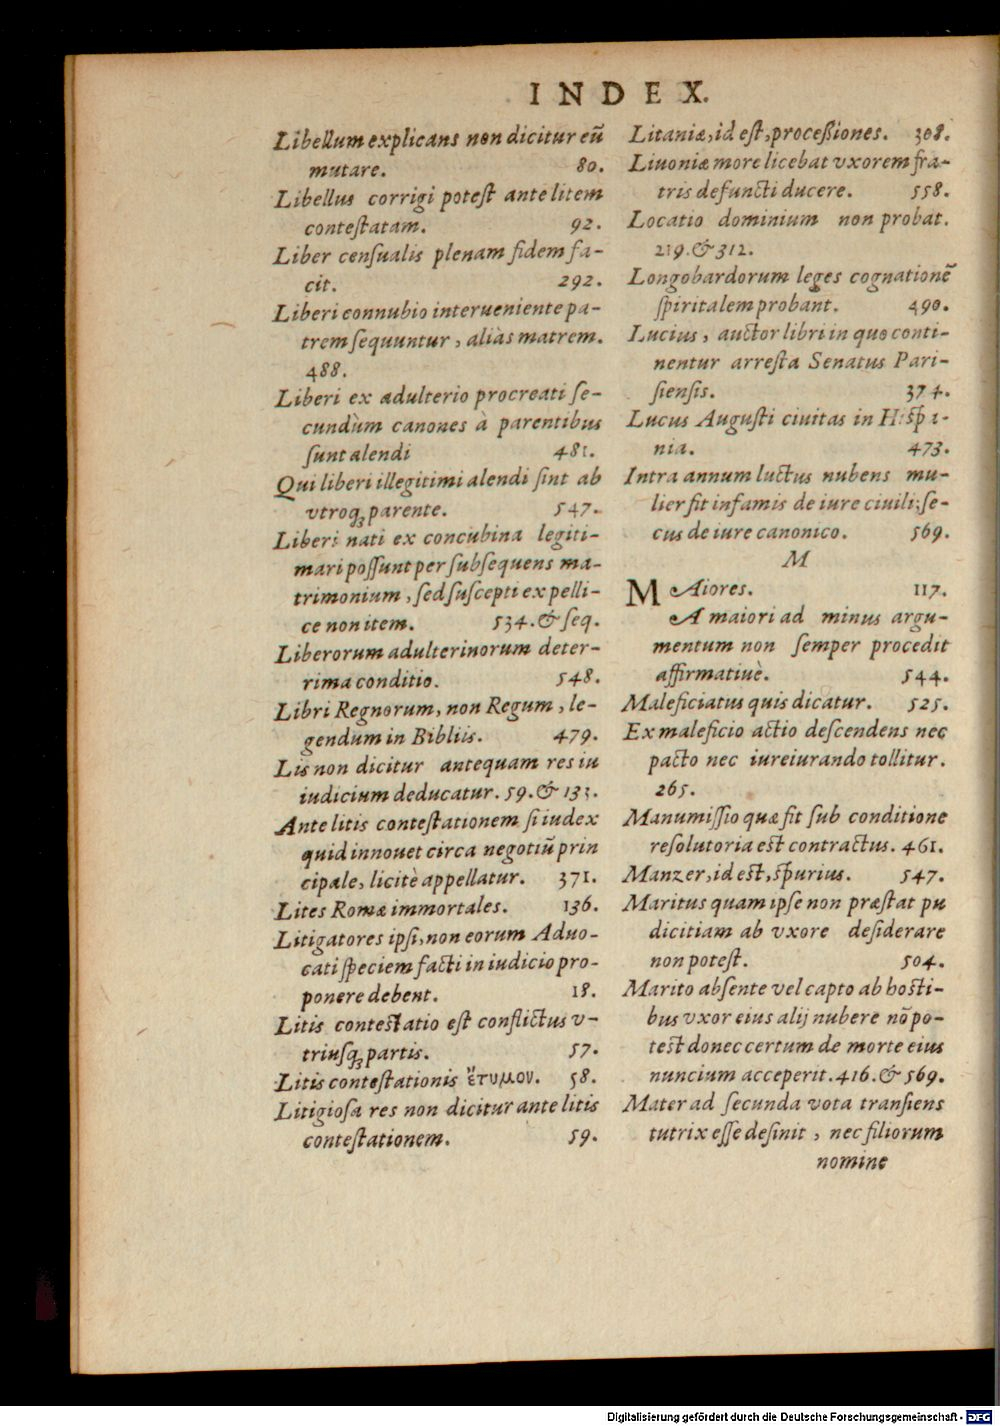 INDEX.
Libellum explicans non dicitur eū
mutare. 80.
Libellus corrigi potest ante litem
contestatam. 92.
Liber censualis plenam fidem fa-
cit. 292.
Liberi connubio interueniente pa-
trem sequuntur, aliàs matrem.
488.
Liberi ex adulterio procreati se-
cundùm canones à parentibus
sunt alendi 481.
Qui liberi illegitimi alendi sint ab
vtroq; parente. 547.
Liberi nati ex concubina legiti-
mari possunt per subsequens ma-
trimonium, sed suscepti ex pelli-
ce non item. 534. & seq.
Liberorum adulterinorum deter-
rima conditio. 548.
Libri Regnorum, non Regum, le-
gendum in Bibliis. 479.
Lis non dicitur antequam res iu
iudicium deducatur. 59. & 133.
Ante litis contestationem si iudex
quid innouet circa negotiū prin
cipale, licitè appellatur. 371.
Lites Romæ immortales. 136.
Litigatores ipsi, non eorum Aduo-
cati speciem facti in iudicio pro-
ponere debent. 18.
Litis contestatio est conflictus v-
triusq; partis. 57.
Litis contestationis ἔτυμον. 58.
Litigiosa res non dicitur ante litis
contestationem. 59.
Litaniæ, id est, processiones. 308.
Liuoniæ more licebat vxorem fra-
tris defuncti ducere. 558.
Locatio dominium non probat.
219. & 312.
Longobardorum leges cognationē
spiritalem probant. 490.
Lucius, auctor libri in quo conti-
nentur arresta Senatus Pari-
siensis. 374.
Lucus Augusti ciuitas in Hispa-
nia. 473.
Intra annum luctus nubens mu-
lier fit infamis de iure ciuili; se-
cus de iure canonico. 569.
M
MAiores. 117.
A maiori ad minus argu-
mentum non semper procedit
affirmatiuè. 544.
Maleficiatus quis dicatur. 525.
Ex maleficio actio descendens nec
pacto nec iureiurando tollitur.
265.
Manumissio quæ fit sub conditione
resolutoria est contractus. 461.
Manzer, id est, spurius. 547.
Maritus quam ipse non præstat pu
dicitiam ab vxore desiderare
non potest. 504.
Marito absente vel capto ab hosti-
bus vxor eius alij nubere nō po-
test donec certum de morte eius
nuncium acceperit. 416. & 569.
Mater ad secunda vota transiens
tutrix esse desinit, nec filiorum
nomine
Digitalisierung gefördert durch die Deutsche Forschungsgemeinschaft - DFG